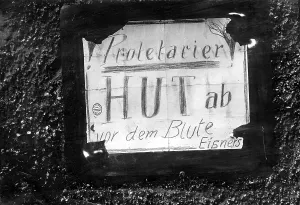 Proletarier
HUT ab
vor dem Blute
Eisners